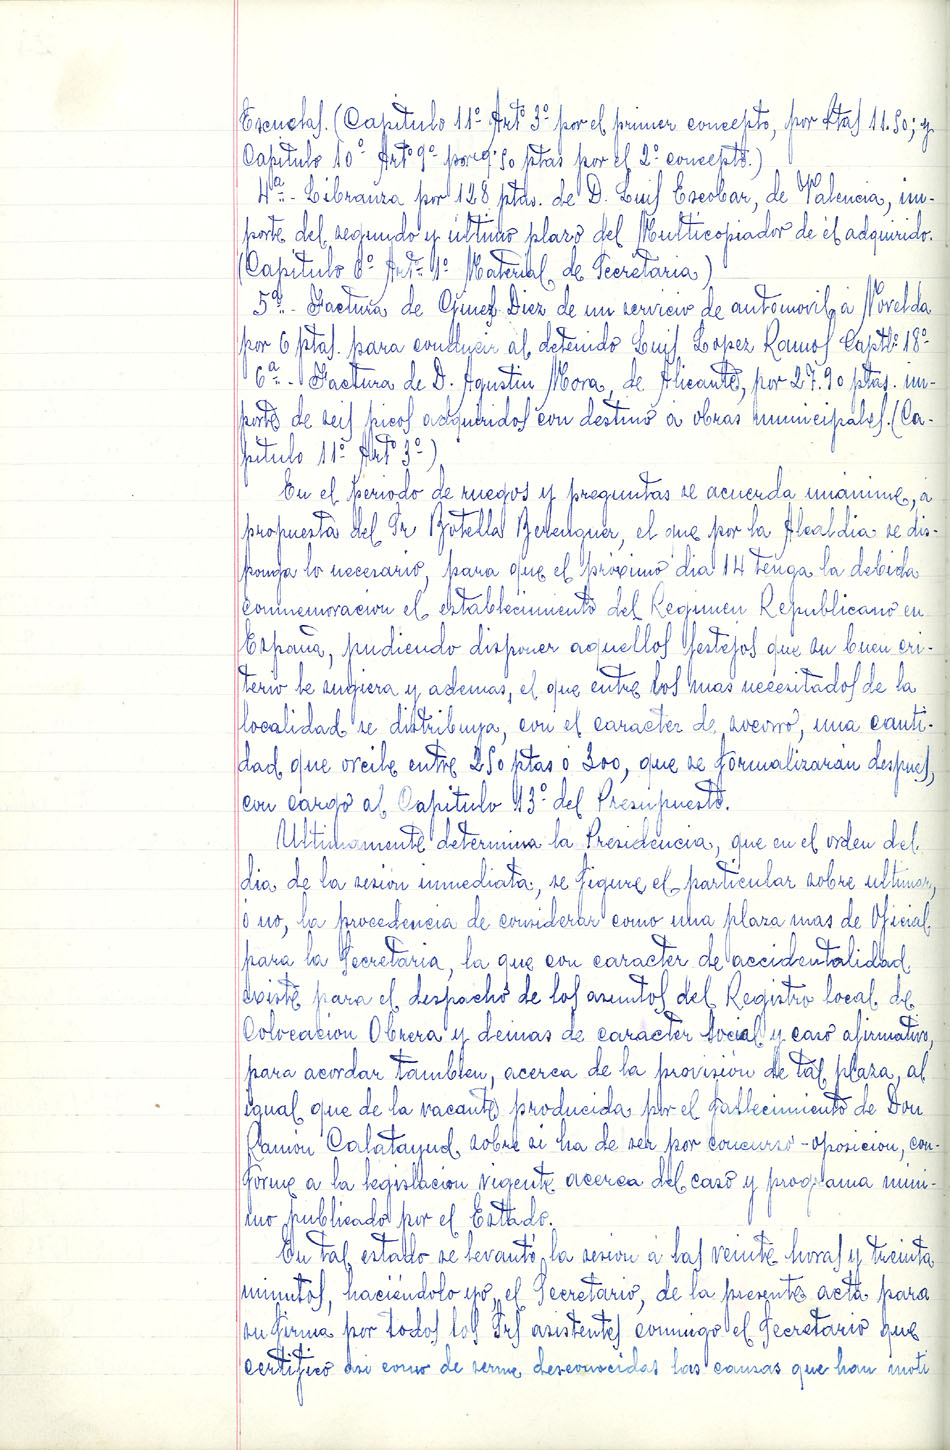 Escuelas. (Capitulo 11º Artº 3º por el primer concepto, por Ptas 11.50; y
Capitulo 10º Artº 9º por 9'50 ptas por el 2º concepto.)
4ª.- Libranza por 128 ptas. de D. Luis Escobar, de Valencia, im-
porte del segundo y ultimo plazo del Multicopiador de él adquirido.
(Capitulo 6º Artº 1º Material de Secretaria)
5ª.- Factura de Ginez Diez de un servicio de automovil a Novelda
por 6 ptas. para conducir al detenido Luis Lopez Ramos Captlº 18º
6ª.- Factura de D. Agustin Mora, de Alicante, por 27.90 ptas. im-
porte de seis picos adquiridos con destino a obras municipales. (Ca-
pitulo 11º Artº 3º)
En el periodo de ruegos y preguntas se acuerda unanime, a
propuesta del Sr Botella Berenguer, el que por la Alcaldia se dis-
ponga lo necesario, para que el próximo dia 14 tenga la debida
conmemoracion el establecimiento del Regimen Republicano en
España, pudiendo disponer aquellos festejos que su buen cri-
terio le sugiera y ademas, el que entre los mas necesitados de la
localidad se distribuya, con el caracter de socorro, una canti-
dad que oscile entre 250 ptas ó 300, que se formalizarán despues,
con cargo al Capitulo 13º del Presupuesto.
Ultimamente determina la Presidencia, que en el orden del
dia de la sesión inmediata, se figure el particular sobre ultimar,
ó no, la procedencia de considerar como una plaza mas de Oficial
para la Secretaria, la que con caracter de accidentalidad
existe para el despacho de los asuntos del Registro local de
Colocacion Obrera y demas de caracter social y caso afirmativo,
para acordar tambien, acerca de la provisión de tal plaza, al
igual que de la vacante producida por el fallecimiento de Don
Ramón Calatayud, sobre si ha de ser por concurso-oposicion, con-
forme a la legislacion vigente acerca del caso y programa mini-
mo publicado por el Estado.
En tal estado se levantó la sesion a las veinte horas y treinta
minutos, haciéndolo yo, el Secretario, de la presente acta para
su firma por todos los Srs asistentes conmigo el Secretario que
certifico asi como de serme desconocidas las causas que han moti